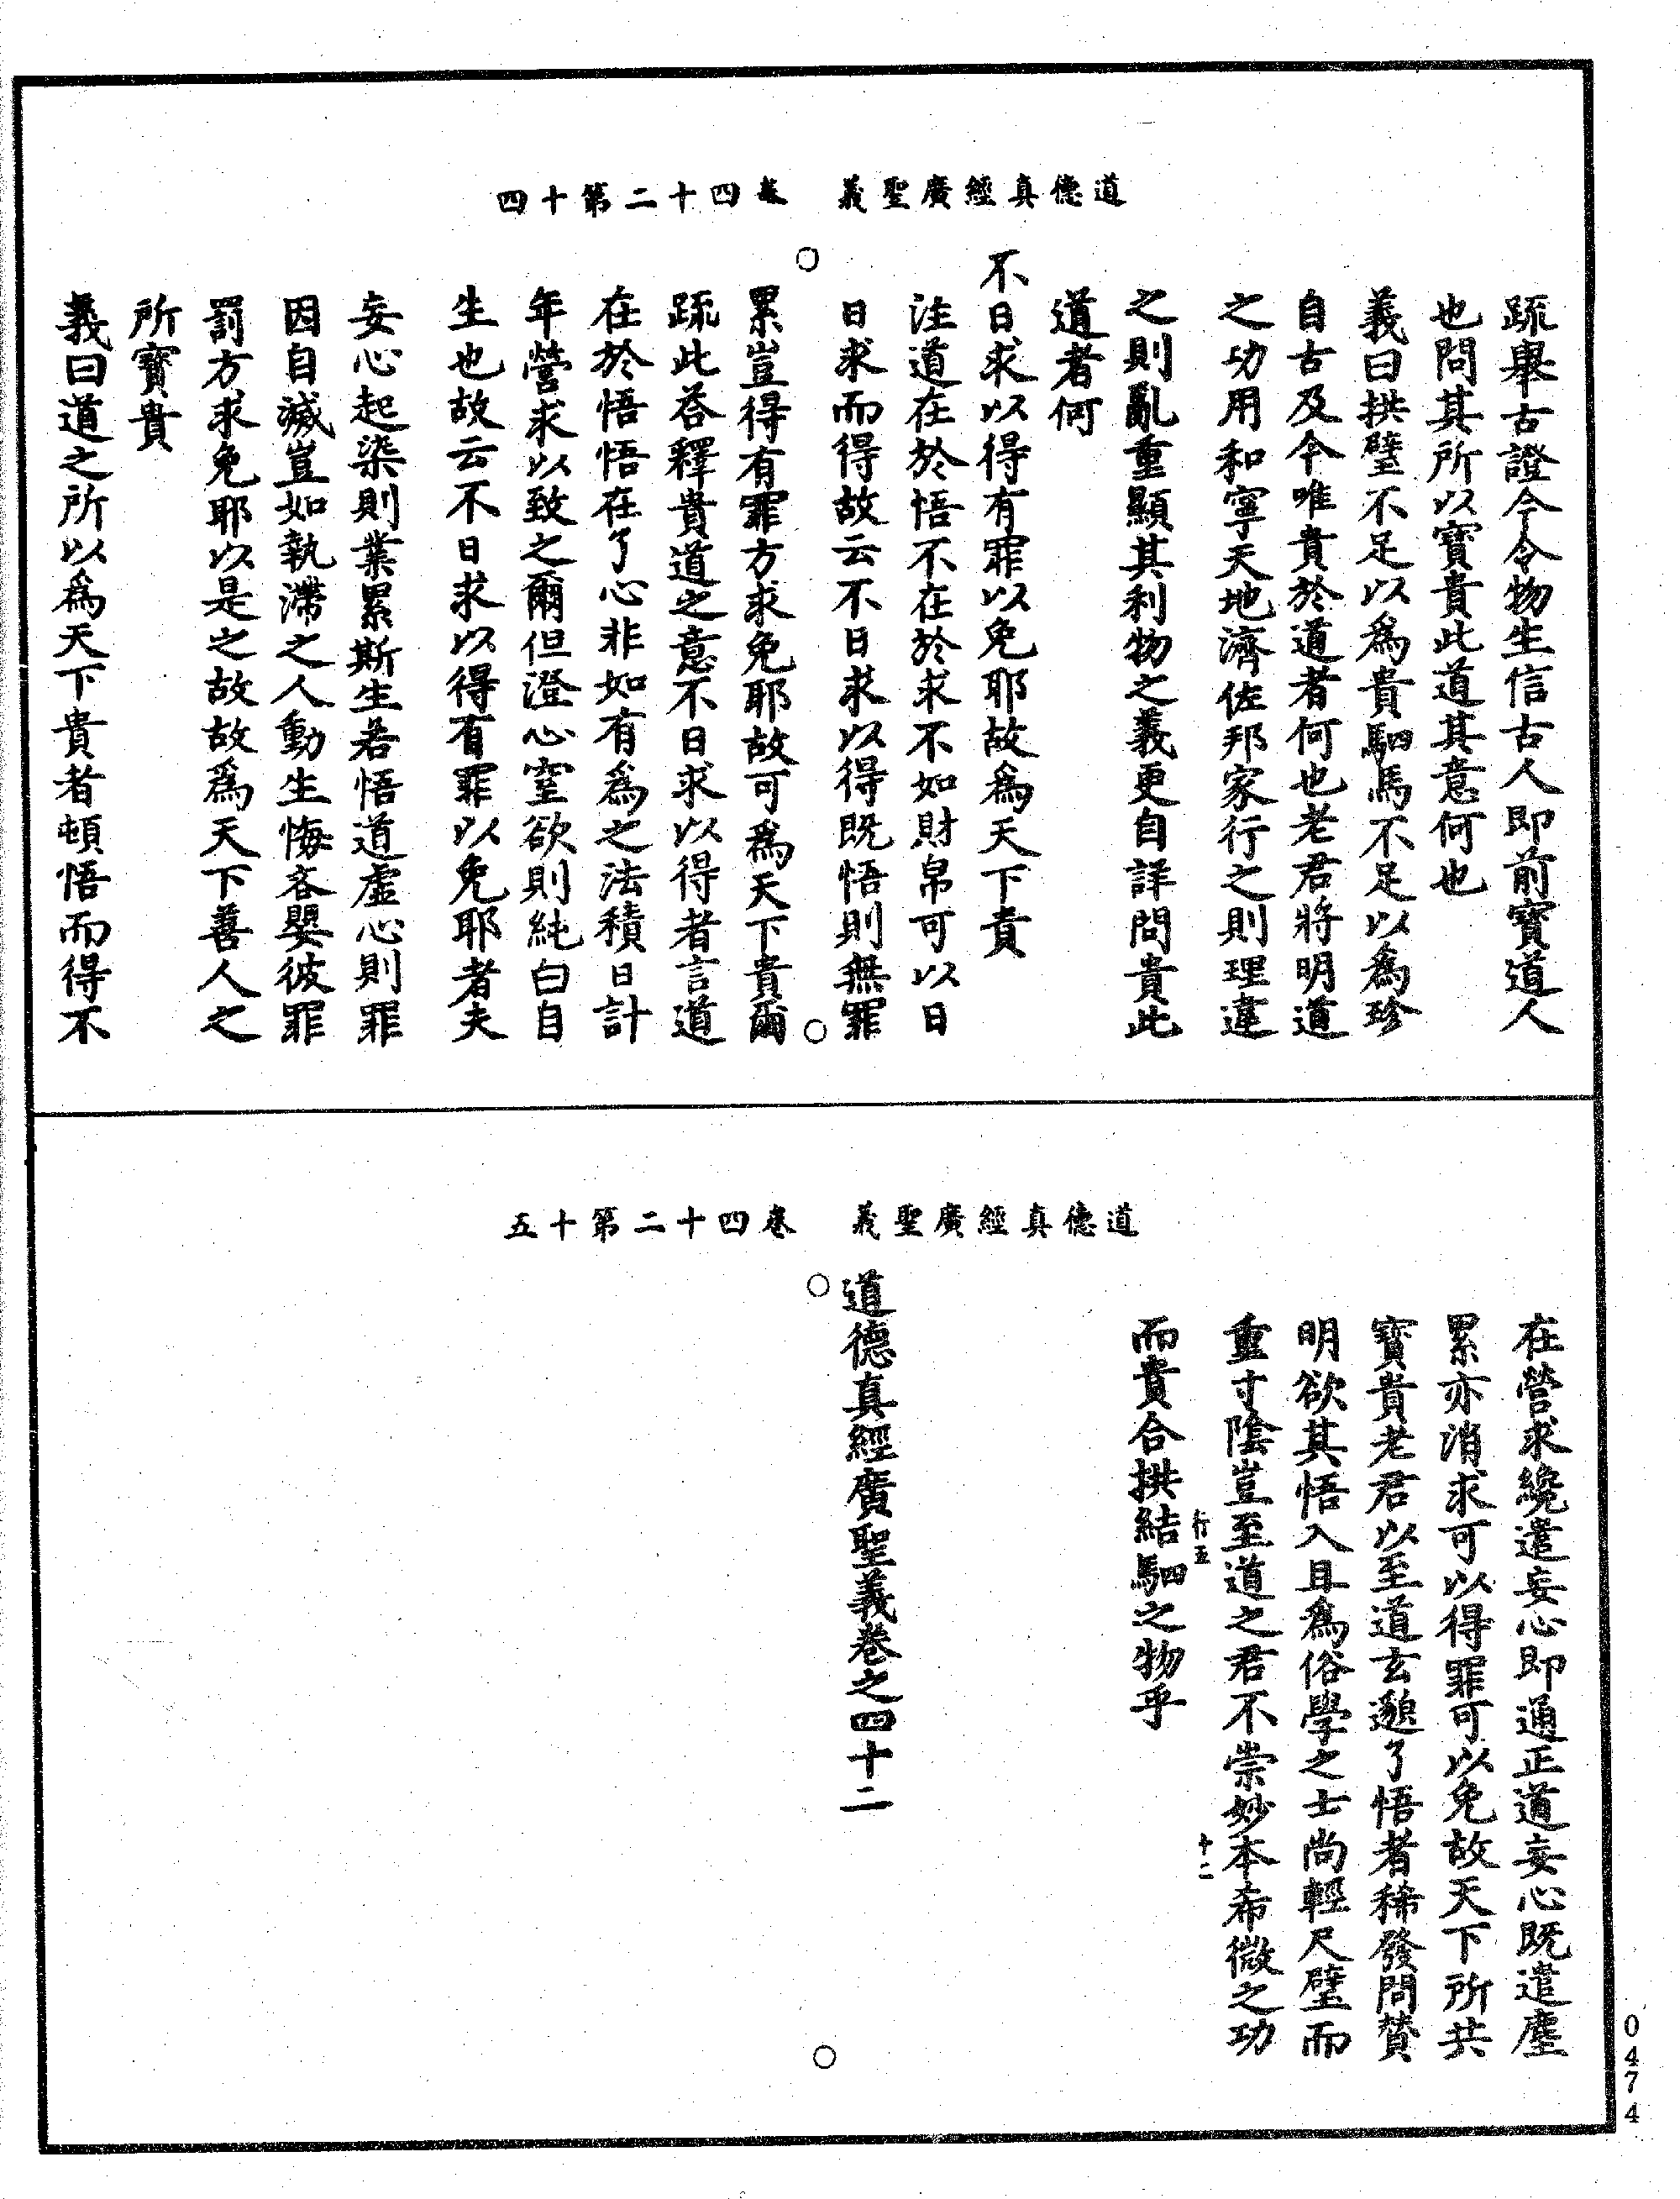 道德真經廣聖義　卷四十二第十四
疏舉古證今令物生信古人即前寶道人
也問其所以寶貴此道其意何也
義曰拱璧不足以為貴駟馬不足以為珍
自古及今唯貴於道者何也老君將明道
之功用和寧天地濟佐邦家行之則理違
之則亂重顯其利物之義更自詳問貴此
道者何
不日求以得有罪以免耶故為天下貴
注道在於悟不在於求不如財帛可以日
日求而得故云不日求以得既悟則無罪
累豈得有罪方求免耶故可為天下貴爾
疏此荅釋貴道之意不日求以得者言道
在於悟悟在了心非如有為之法積日計
年營求以致之爾但澄心窒欲則純白自
生也故云不日求以得有罪以免耶者夫
妄心起染則業累斯生若悟道虛心則罪
因自滅豈如執滯之人動生悔吝嬰彼罪
罰方求免耶以是之故故為天下善人之
所寶貴
義曰道之所以為天下貴者頓悟而得不
道德真經廣聖義　卷四十二第十五
在營求纔遣妄心即通正道妄心既遣塵
累亦消求可以得罪可以免故天下所共
寶貴老君以至道玄邈了悟者稀發問贊
明欲其悟入且為俗學之士尚輕尺璧而
重寸陰豈至道之君不崇妙本希微之功
行五
十二
而貴合拱結駟之物乎
道德真經廣聖義卷之四十二
0474